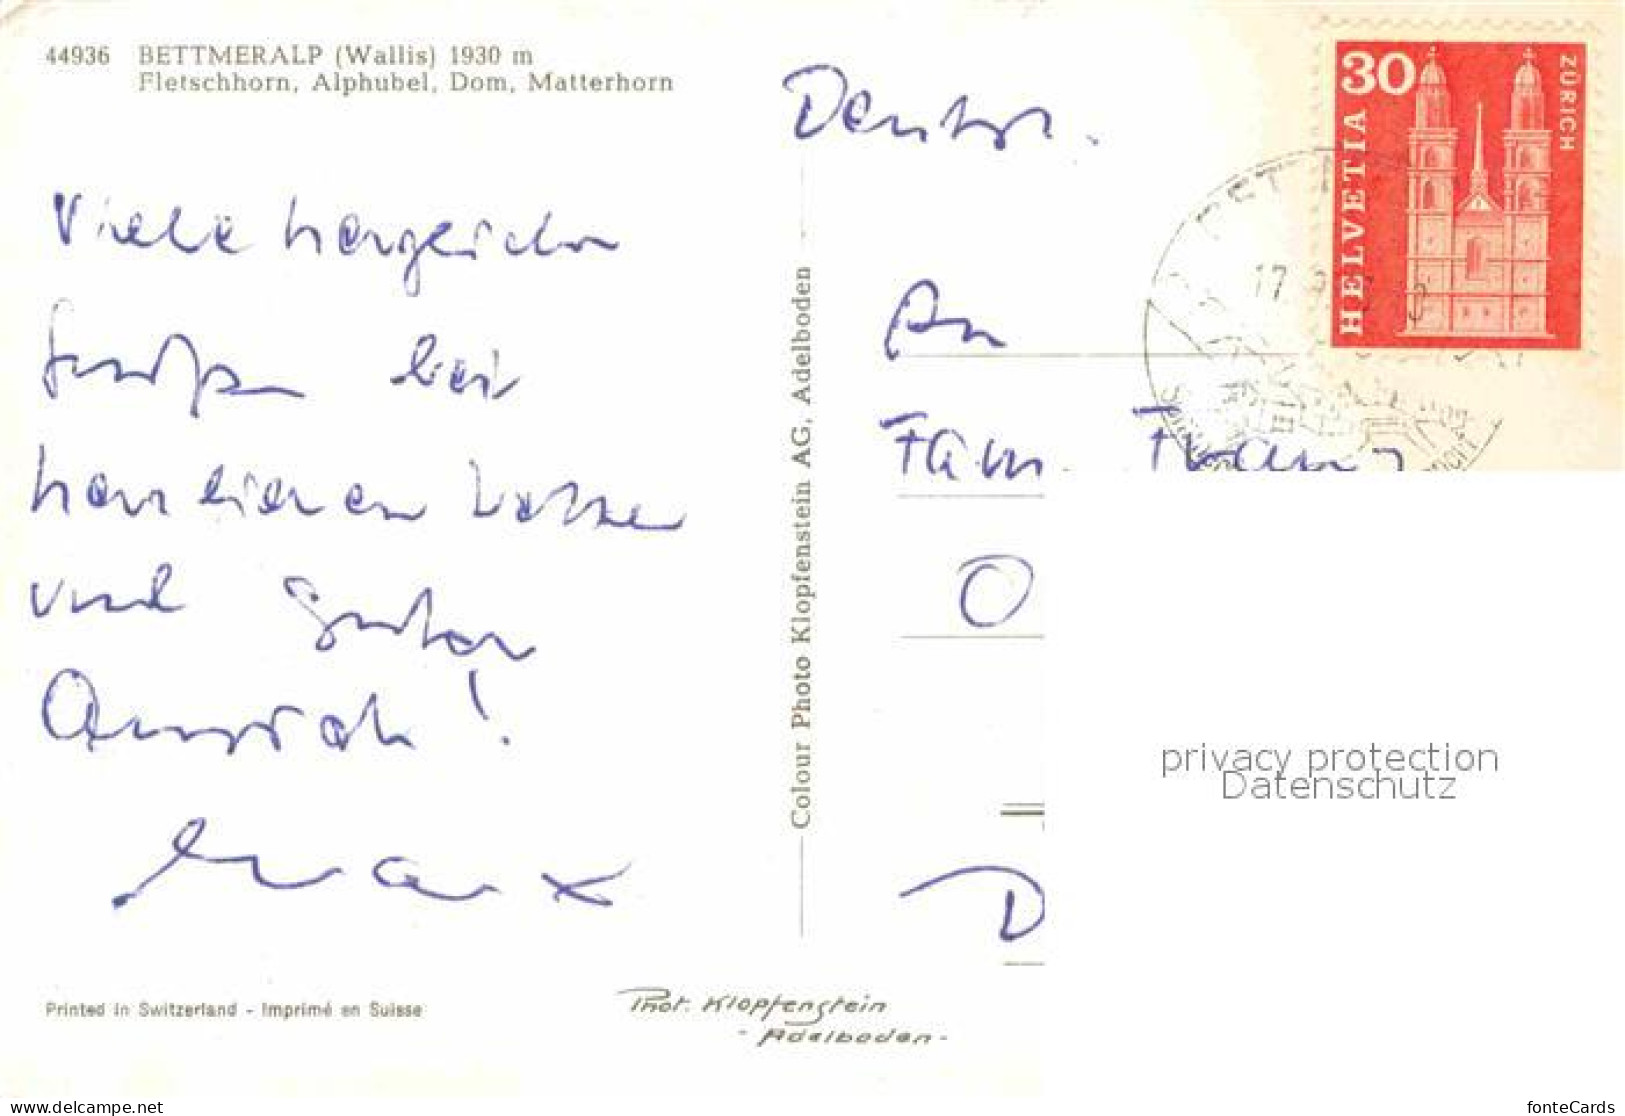 44936 BETTMERALP (Wallis) 1930 m
Fletschhorn, Alphubel, Dom, Matterhorn
Viele
bei
herrlichem Wetter
und guter
Aussicht!
Max
Printed in Switzerland - Imprimé en Suisse
Colour Photo Klopfenstein AG, Adelboden
Phot. Klopfenstein
- Adelboden -
30
HELVETIA
ZÜRICH
17
An
Fam.
O
D
privacy protection
Datenschutz
https://www.delcampe.net
fonteCards